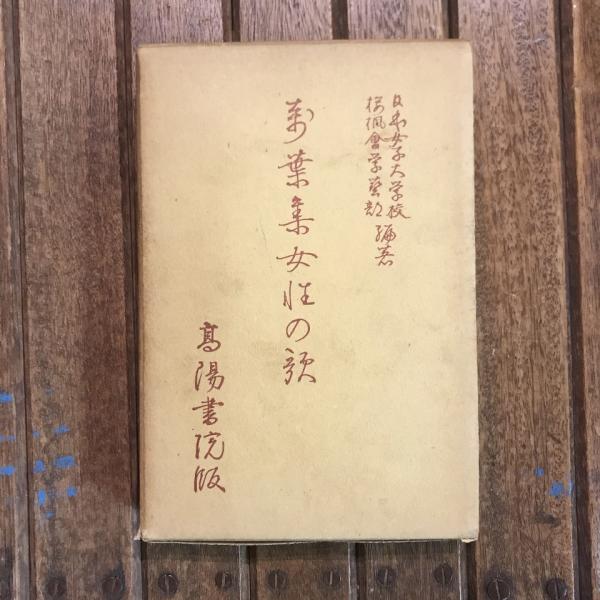 日本女子大学校
桜楓會学藝部 編著
萬葉集女性の歌
高陽書院版